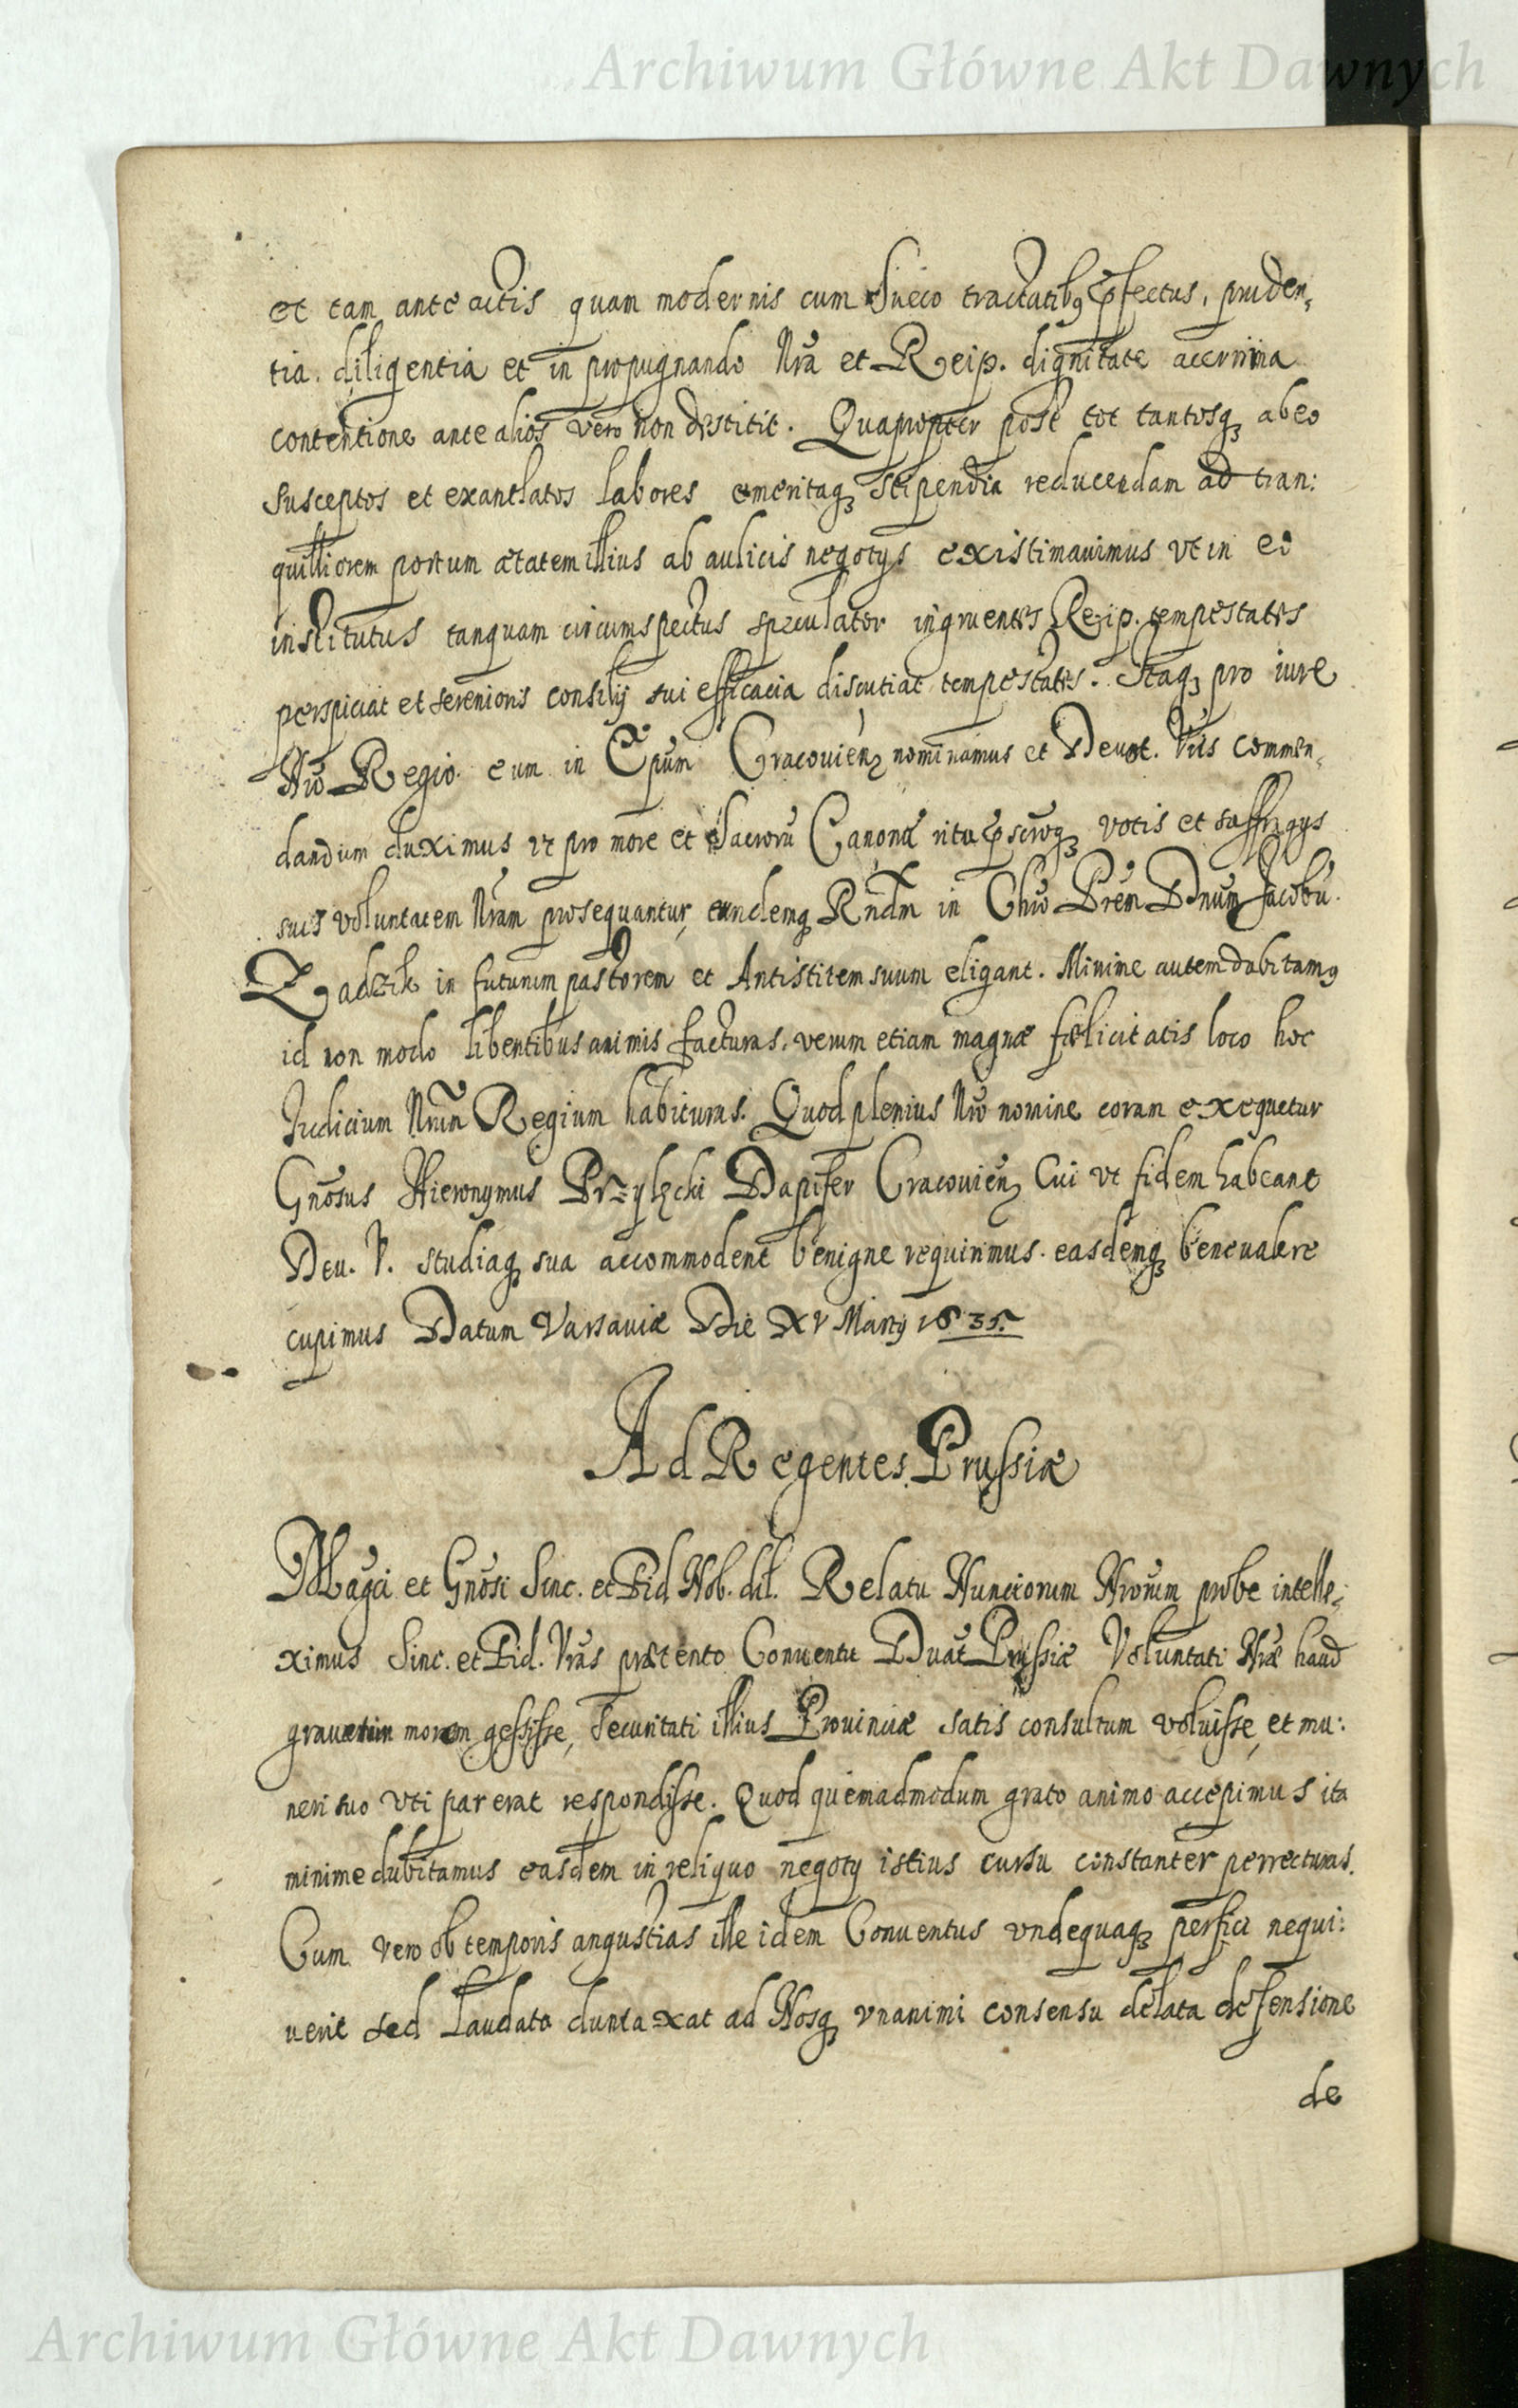 Archiwum Główne Akt Dawnych
et tam ante actis quam modernis cum Sueco tractatibq pfectus, pruden,
tia. diligentia et in propugnando Nrã et Reip. dignitate acerrima
contentione ante alios vero non destitit. Quapropter post tot tantosq₃ ab eo
susceptos et exantlatos labores emeritaq₃ stipendia reducendam ad tran:
quilliorem portum ætatem illius ab aulicis negotys existimauimus vt in eo
institutus tanquam circumspectus speculator ingruentes Reip. tempestates
perspiciat et serenioris consilij sui efficacia discutiat tempestates. Itaq₃ pro iure
Nrõ Regio eum in Epũm Cracouien₃ nominamus et Deuot. Vris commen,
dandum duximus vt pro more et Sacrorũ Canonũ ritu pscroq₃ votis et suffragys
suis voluntatem Nram prosequantur, eundemq₃ Rndm in Chrõ Prem Dnum Jacobũ
Zadzik in futurum pastorem et Antistitem suum eligant. Minime autem dubitamq
id non modo libentibus animis facturas, verum etiam magnæ fœlicitatis loco hoc
Judicium Nrum Regium habituras. Quod plenius Nrõ nomine coram exequetur
Gnõsus Hieronymus Przyłęcki Dapifer Cracouien₃ Cui vt fidem habeant
Deu. V. studiaq₃ sua accommodent benigne requirimus. easdemq₃ bene ualere
cupimus Datum Varsauiæ Die XV Martij 1635.
Ad Regentes Prussiæ
Magci et Gnõsi Sinc. et Fid Nob. dil. Relatu Nunciorum Nrorum probe intelle,
ximus Sinc. et Fid. Vrãs prætento Conuentu Ducat Prussiæ Voluntati Nræ haud
grauatim morem gessisse, securitati illius Prouinciæ satis consultum voluisse, et mu:
neri suo vti par erat respondisse. Quod quemadmodum grato animo accepimus ita
minime dubitamus easdem in reliquo negoty istius cursu constanter perrecturas.
Cum vero ob temporis angustias ille idem Conuentus vndequaq₃ perfici nequi:
uerit sed Laudata duntaxat ad Nosq₃ vnanimi consensu delata defensione
de
Archiwum Główne Akt Dawnych